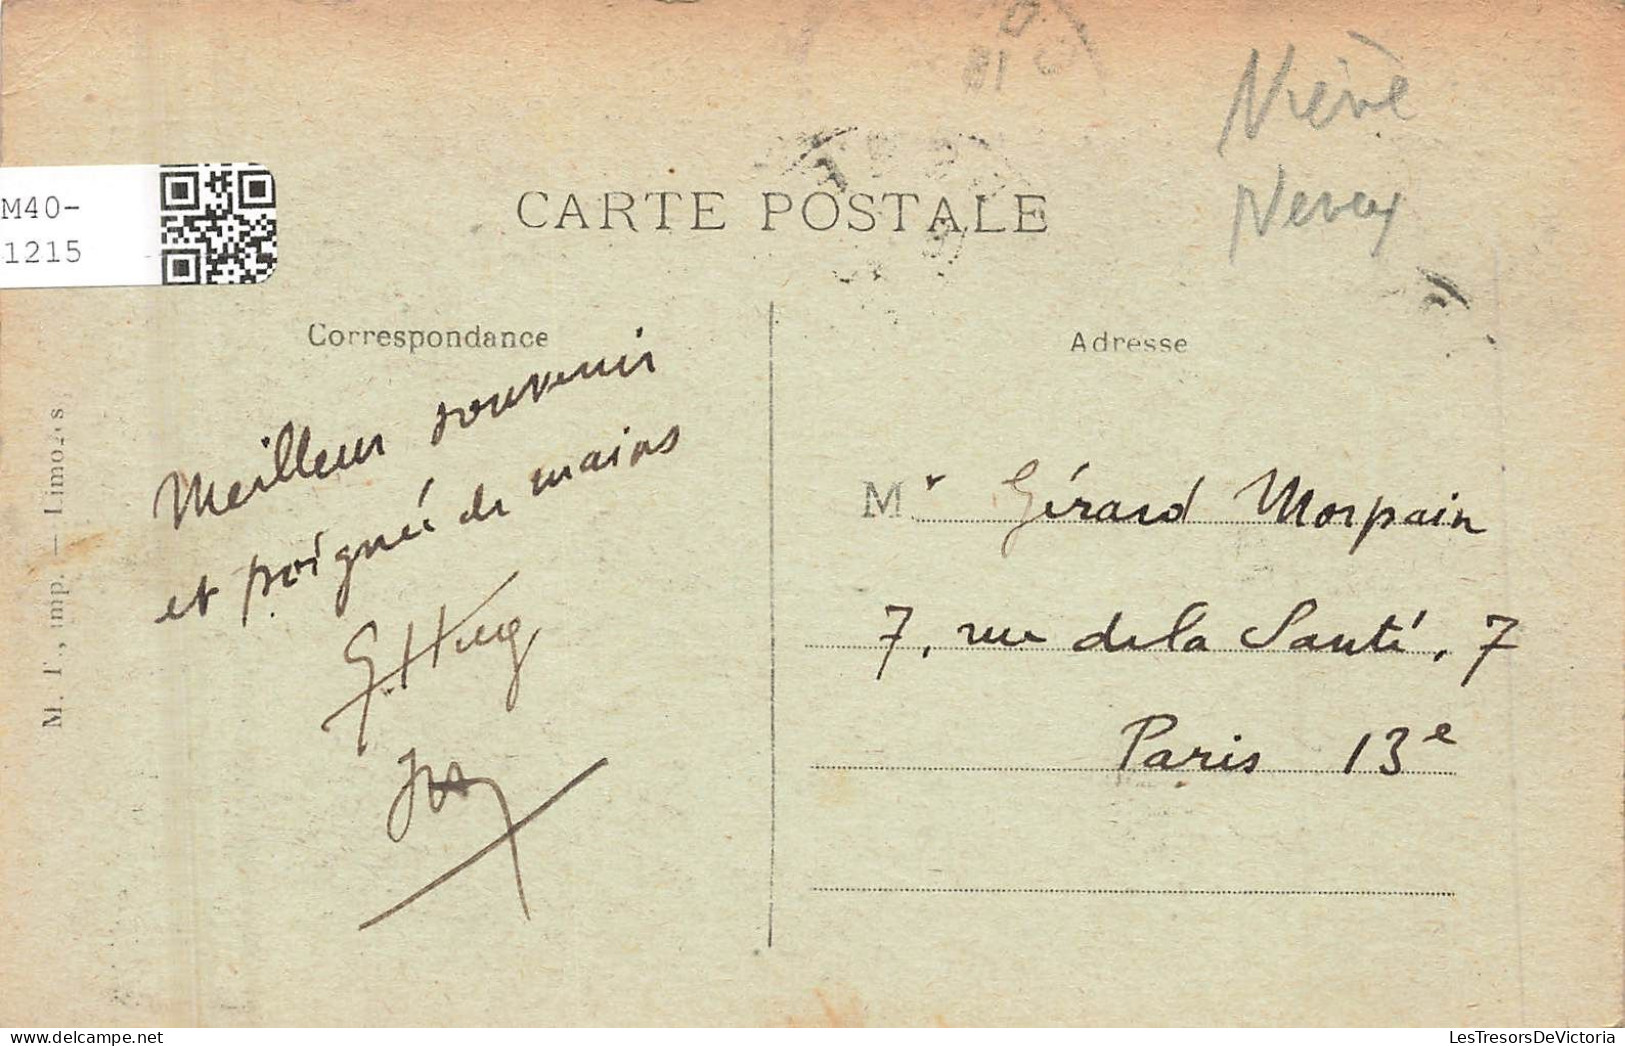 Nièvre
Nevers
M40-
1215
CARTE POSTALE
Correspondance
Adresse
Meilleur souvenir
et poignée de mains
G. Hug
Mr Gérard Morpain
7, rue de la Santé, 7
Paris 13e
M. T., imp. — Limoges
delcampe.net
LesTresorsDeVictoria